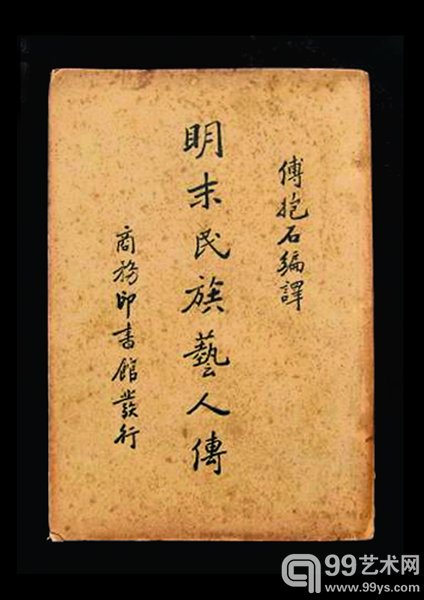 傅抱石編譯
明末民族藝人傳
商務印書館發行
99艺术网
www.99ys.com